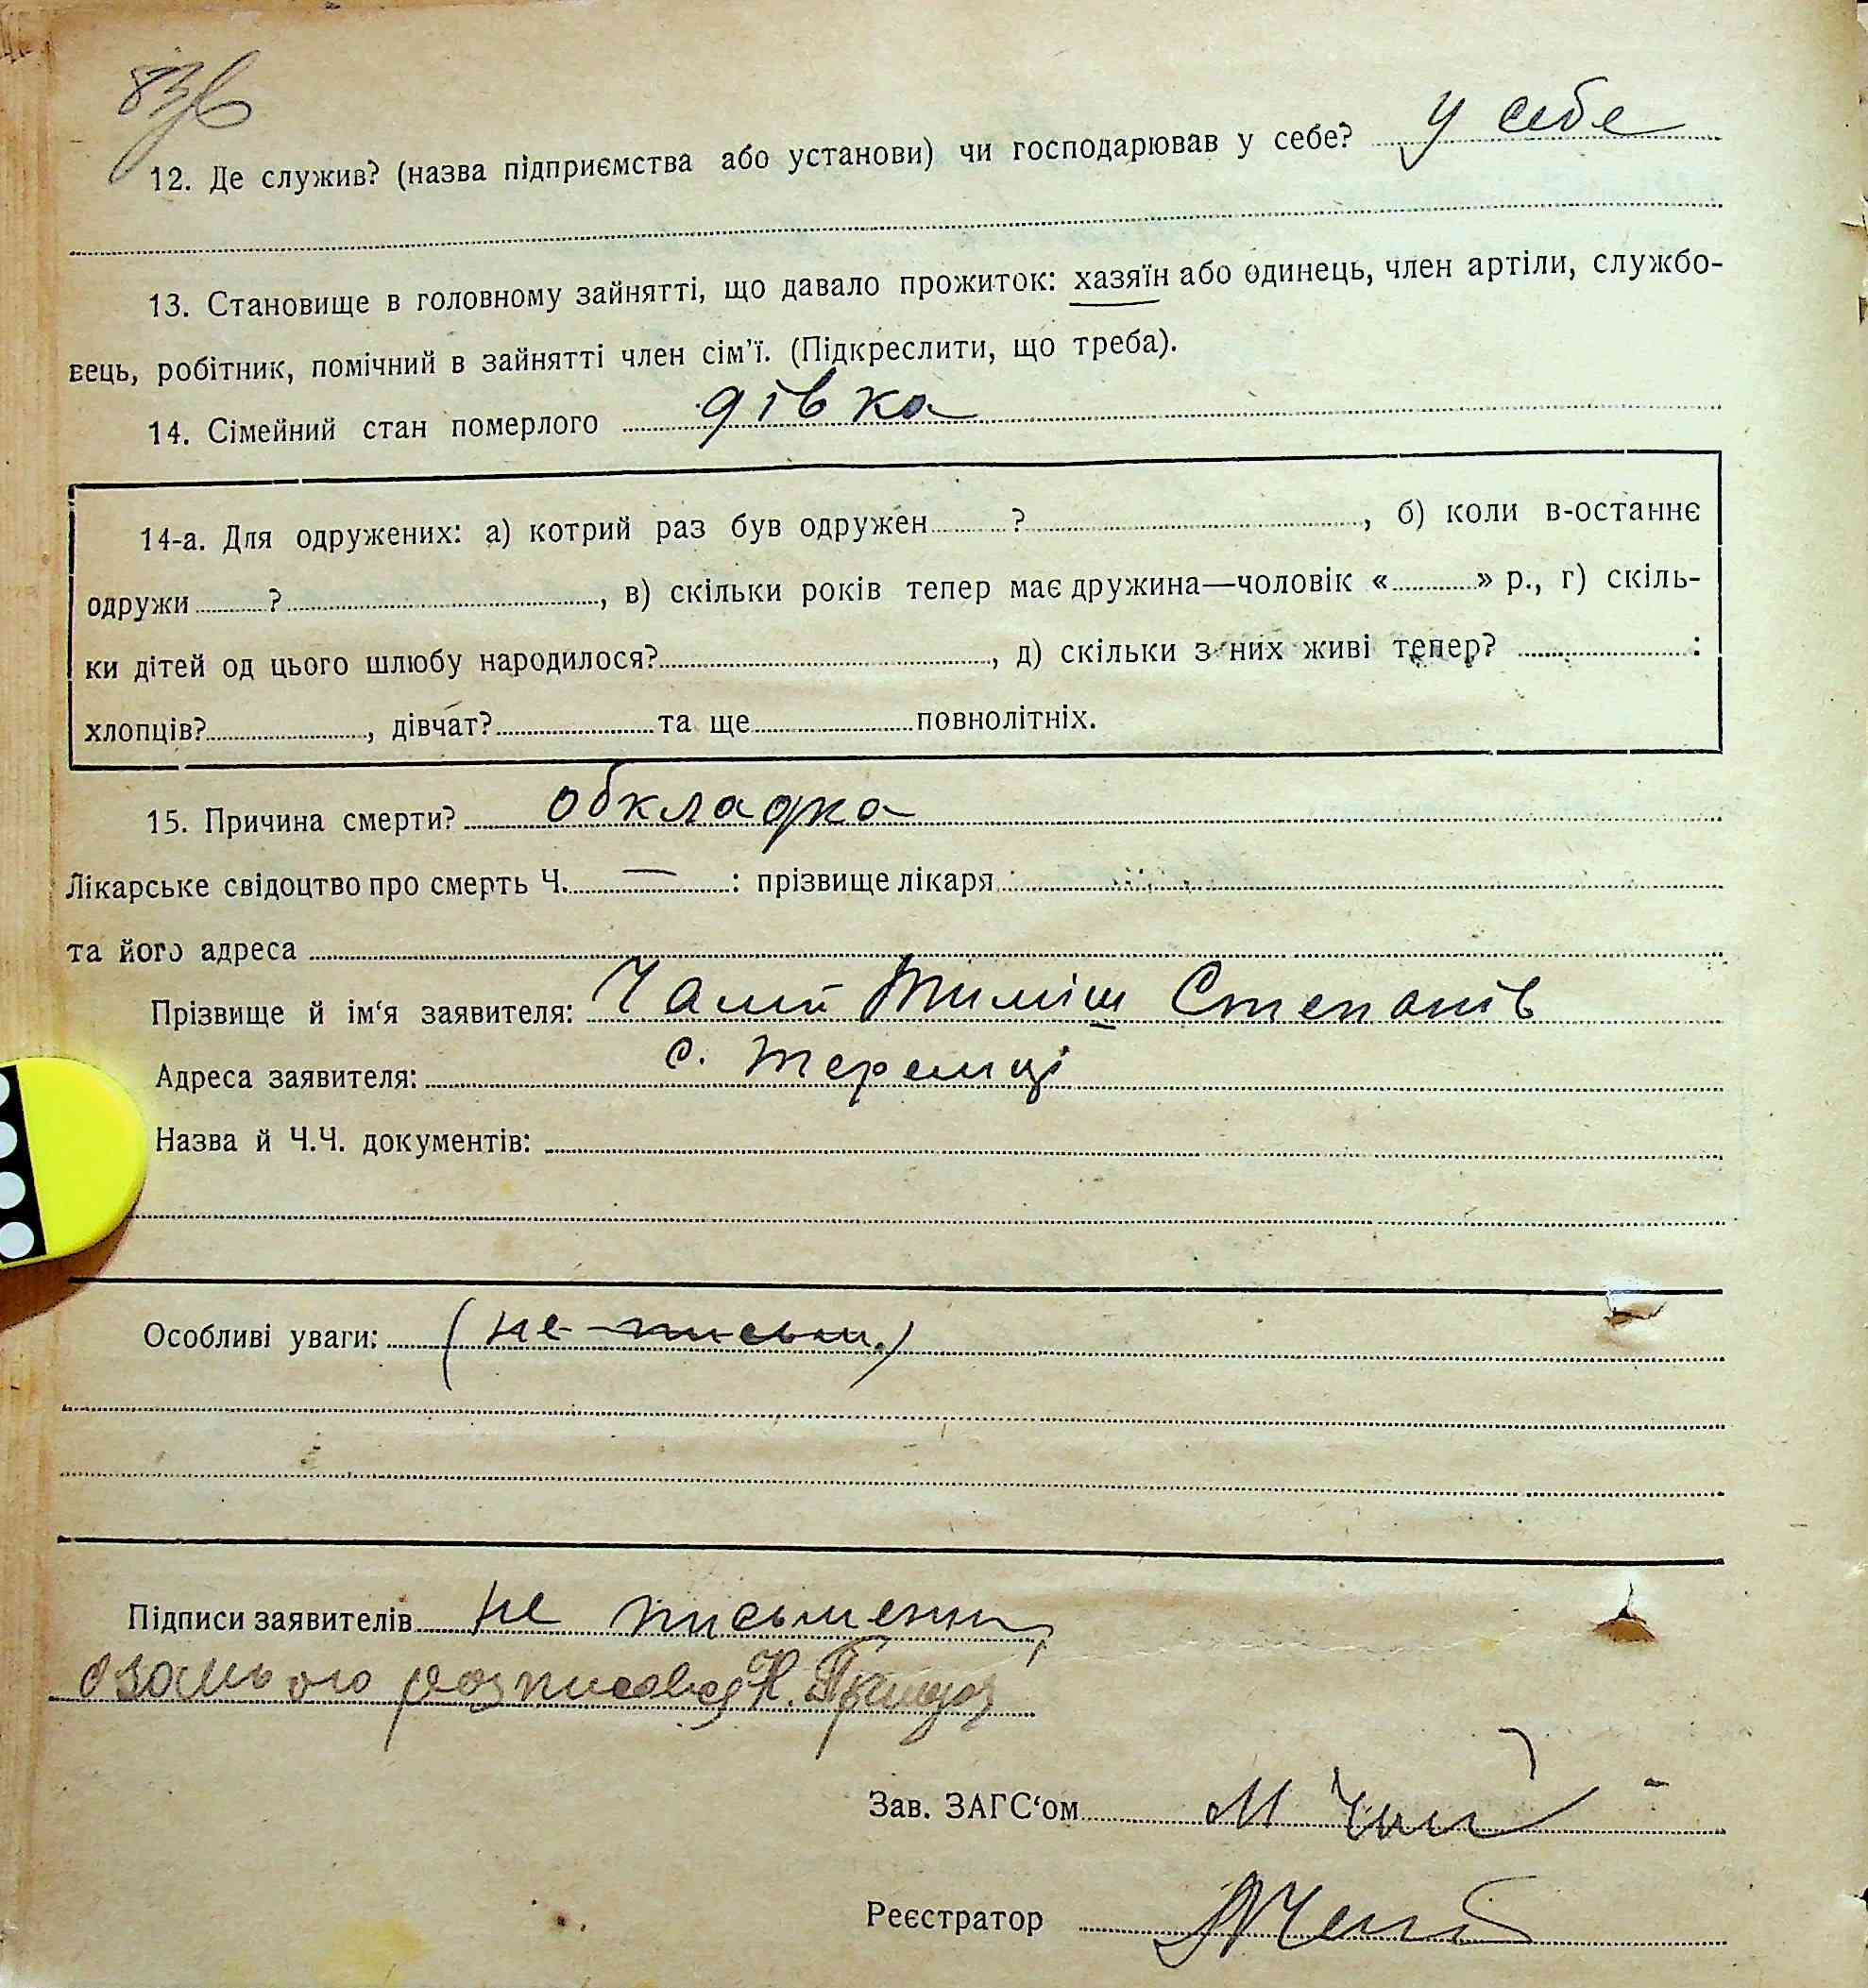 83б
12. Де служив? (назва підприємства або установи) чи господарював у себе? у себе
13. Становище в головному зайнятті, що давало прожиток: хазяїн або одинець, член артіли, службо-
вець, робітник, помічний в зайнятті член сім'ї. (Підкреслити, що треба).
14. Сімейний стан померлого дівка
14-а. Для одружених: а) котрий раз був одружен ? , б) коли в-останнє
одружи ? , в) скільки років тепер має дружина—чоловік « » р., г) скіль-
ки дітей од цього шлюбу народилося? , д) скільки з них живі тепер? :
хлопців? , дівчат? та ще повнолітніх.
15. Причина смерти? обкладка
Лікарське свідоцтво про смерть Ч. — : прізвище лікаря
та його адреса
Прізвище й ім'я заявителя: Чалий Тиміш Степанів
Адреса заявителя: с. Теремці
Назва й Ч.Ч. документів:
Особливі уваги: (не письм.)
Підписи заявителів не письменн
розписався Н.
Зав. ЗАГС'ом М
Реєстратор